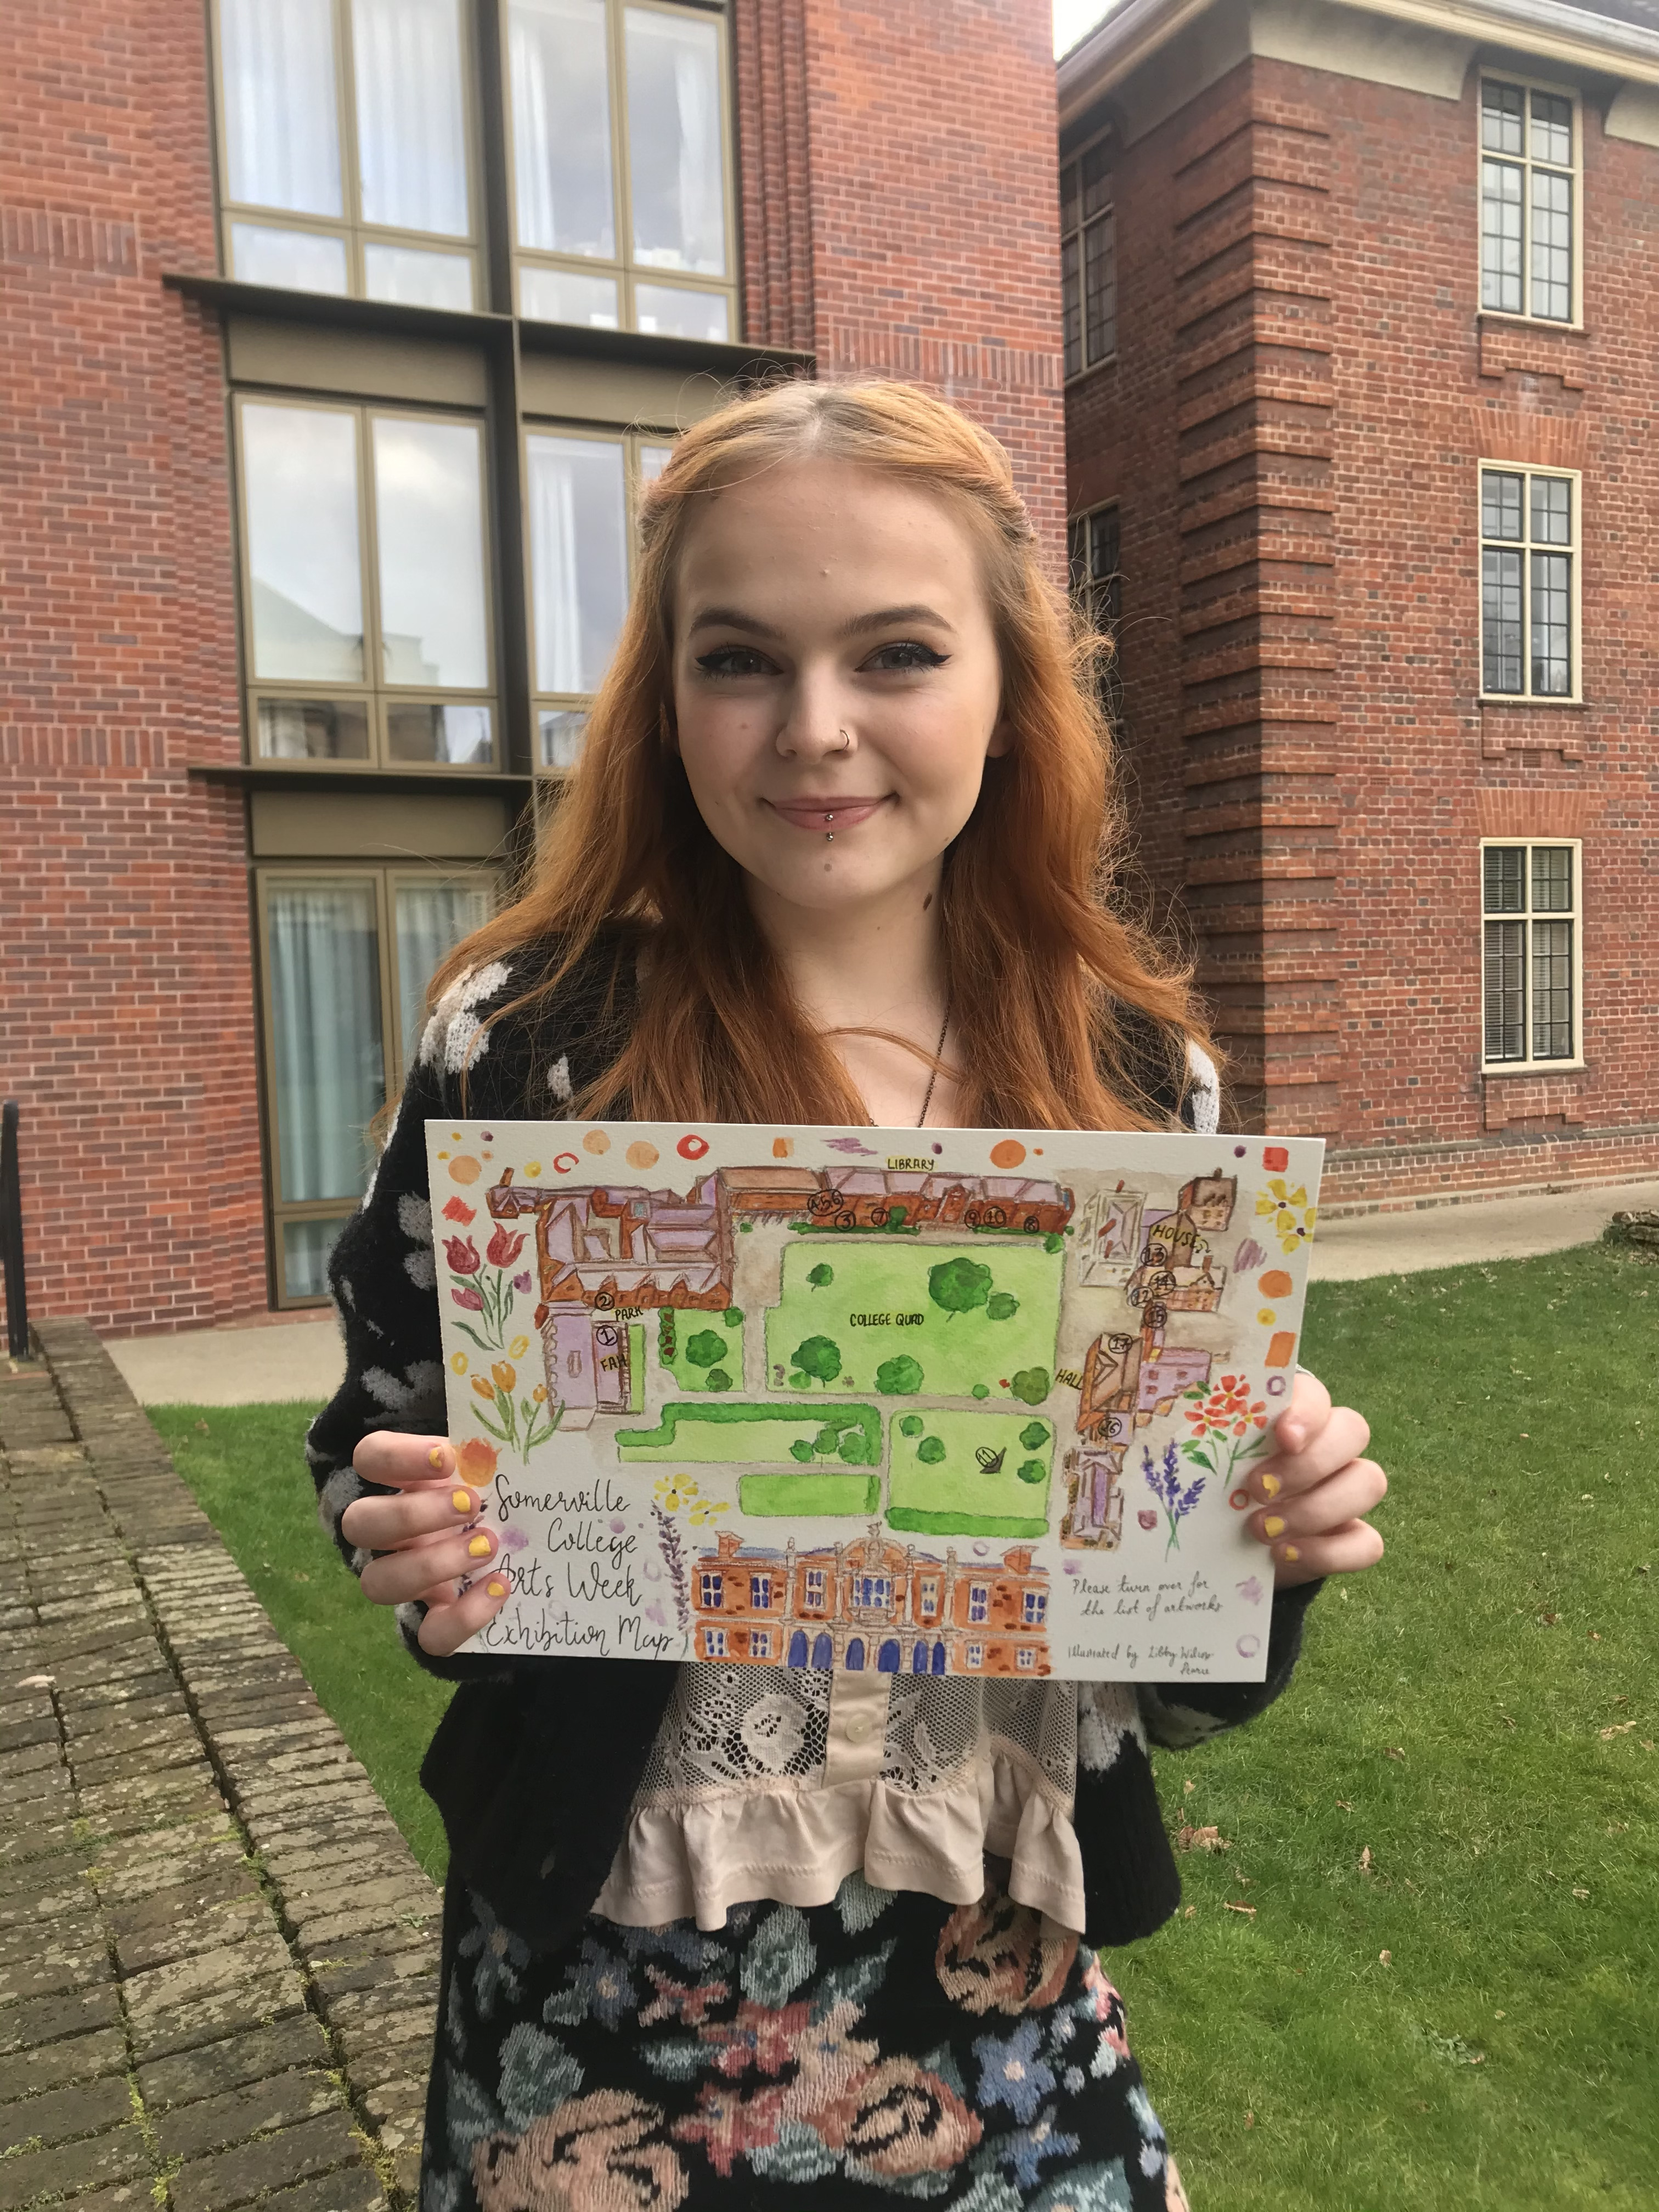 LIBRARY
A56
3
7
9
10
8
HOUSE
13
14
12
15
2
PARK
1
FAH
COLLEGE QUAD
17
HALL
16
11
Somerville
College
Arts Week
Exhibition Map
Please turn over for
the list of artworks
Illustrated by Libby Wilson
Pearce